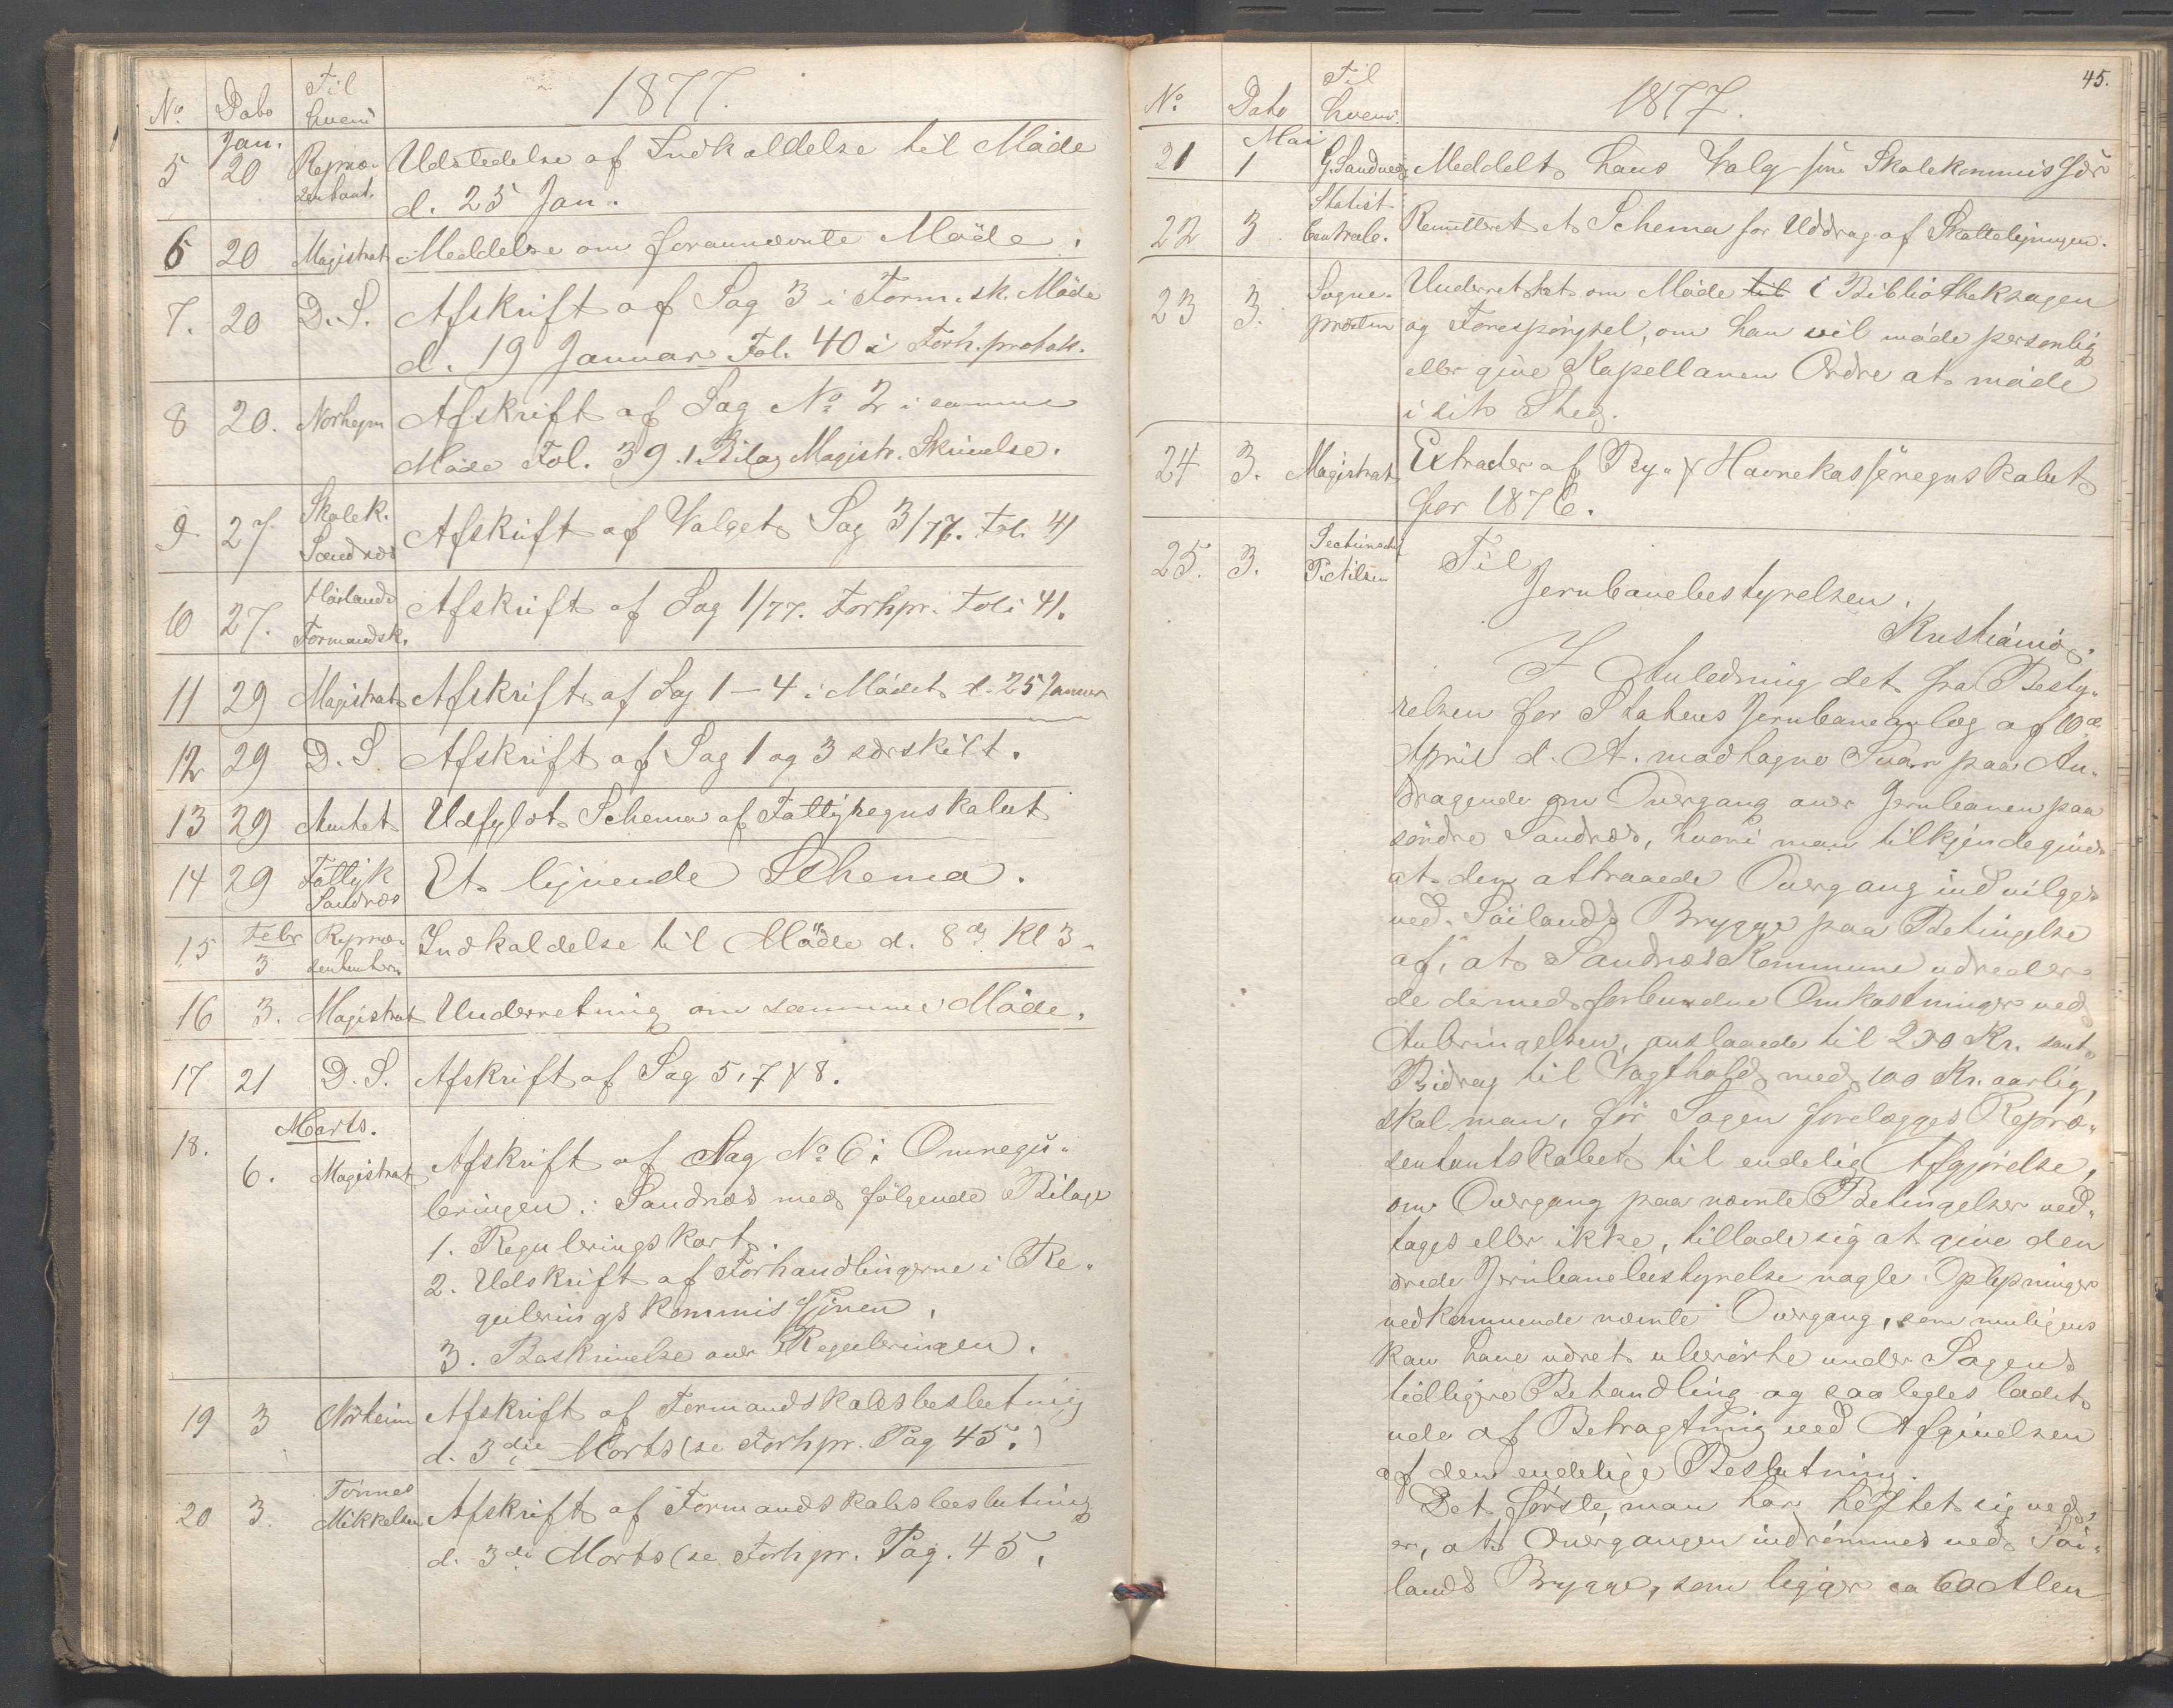 No. Dato Til hvem 1877.
Jan.
5 20 Repræ- Udstedelse af Indkaldelse til Møde
sentant. d. 25 Jan.
6 20 Magistrat Meddelse om forannævnte Møde.
7. 20 D. S. Afskrift af Sag 3 i Form.sk. Møde
d. 19 Januar Fol. 40 i Forh.protok.
8 20. Norheym Afskrift af Sag No. 2 i samme
Møde Fol. 39. 1 Bilag Magistr. Skrivelse.
9 27. Skolek. Afskrift af Valget Sag 3/77. Fol. 41
Sandnæs
10 27. Høilands Afskrift af Sag 1/77. Forhpr. Foli 41.
Formandsk.
11 29 Magistrat Afskrift af Sag 1-4 i Mødet d. 25 Januar
12 29 D. S. Afskrift af Sag 1 og 3 særskilt.
13 29 Amtet Udfyldt Schema af Fattigregnskabet
14 29 Fattigk Et lignende Schema.
Sandnæs
15 Febr 3 Repræ- Indkaldelse til Møde d. 8de Kl 3
sentanterne
16 3. Magistrat Underretning om samme Møde.
17 21 D. S. Afskrift af Sag 5, 7 & 8.
18. Marts.
6. Magistrat Afskrift af Sag No. 6: Omregu-
leringen i Sandnæs med følgende Bilage
1. Reguleringskart.
2. Udskrift af Forhandlingerne i Re-
guleringskommissionen.
3. Beskrivelse over Reguleringen.
19 3 Norheim Afskrift af Formandskabsbeslutning
d. 3die Marts (se Forhpr. Pag 45.)
20 3. Tønnes Mikkelsen Afskrift af Formandskabsbeslutning
d. 3die Marts (se Forhpr. Pag. 45.
45.
No. Dato Til hvem. 1877.
Mai
21 1 G. Sandved Meddelt hans Valg som Skolekommissær
22 3 Statist. Centralb. Remitteret et Schema for Uddrag af Skatteligningen.
23 3. Sogne- Underrettet om Møde til i Bibliotheksagen
præsten og Forespørgsel, om han vil møde personlig
eller give Kapellanen Ordre at møde
i sit Sted.
24 3. Magistrat Extrader af By- & Havnekasseregnskabet
for 1876.
25. 3. P. Nilsen Til
Jernbanebestyrelsen.
Kristiania.
I Anledning det fra Besty-
relsen for Statens Jernbaneanlæg af 10de
April d. A. modtagne Svar paa An-
dragende om Overgang over Jernbanen paa
søndre Sandnæs, hvori man tilkjendegives
at den attraaede Overgang indvilges
ved Søilands Brygge paa Betingelse
af, at Sandnæs Kommune udreder
de dermed forbundne Omkostninger ved
Anbringelsen, anslaaede til 200 Kr. samt
Bidrag til Vagthold med 100 Kr. aarlig,
skal man, før Sagen forelægges Repræ-
sentantskabet til endelig Afgjørelse,
om Overgang paa nævnte Betingelser ved-
tages eller ikke, tillade sig at give den
ærede Jernbanebestyrelse nogle Oplysninger
vedkommende nævnte Overgang, som muligens
kan have været uberørte under Sagens
tidligere Behandling og saaledes ladet
ude af Betragtning ved Afgivelsen
af den endelige Beslutning.
Det første, man har heftet sig ved,
er, at Overgangen indrømmes ved Søi-
lands Brygge, som ligger ca 60 Alen